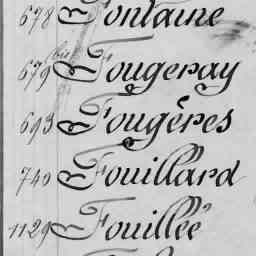 678 Fontaine
679 bis Fougeray
693 Fougères
740 Fouillard
1129 Fouillée